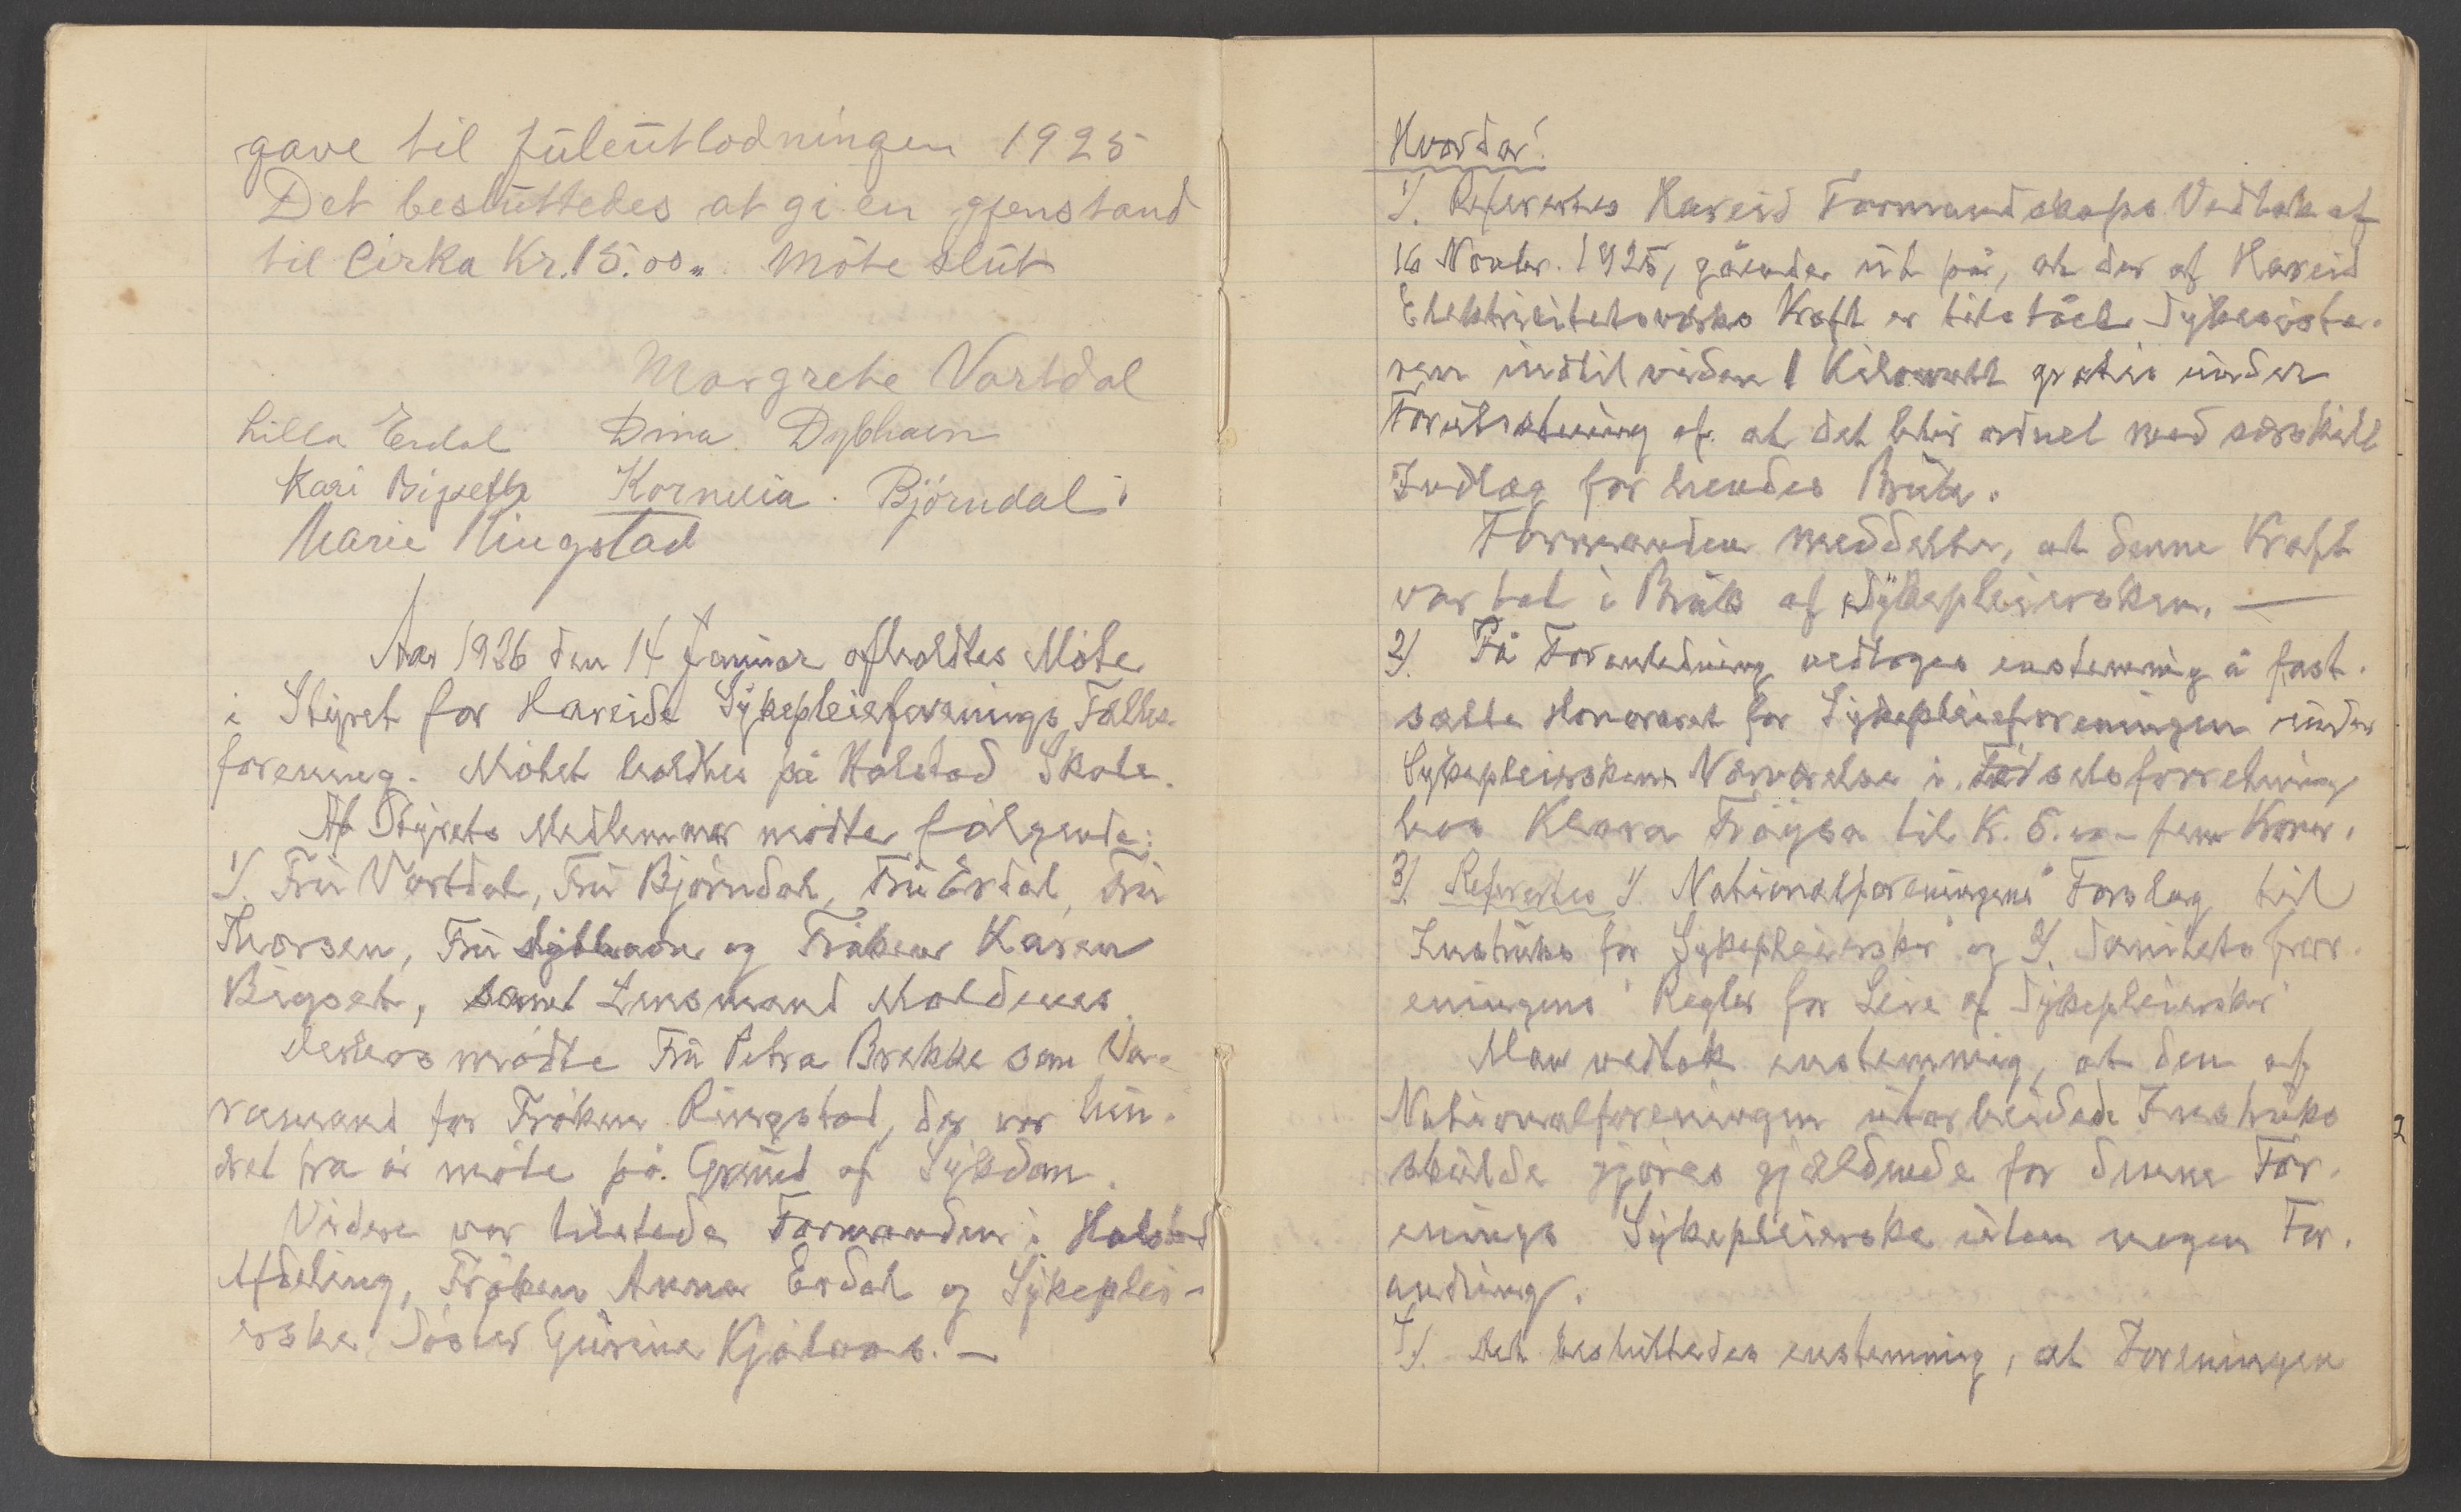 gave til juleutlodningen 1925
Det besluttedes at gi en gjenstand
til Cirka Kr. 15.00„ Möte slut
Margrethe Vartdal
Lilla Erdal Dina Dybhavn
Kari Bigseth Kornelia Björndal.
Marie Ringstad
Aar 1926 den 14 Januar afholdtes Möte
i Styret for Hareids Sykepleieforenings Fælles-
forening. Mötet holdtes på Holstad Skole.
Af Styrets Medlemmer mödte følgende:
1/. Fru Vartdal, Fru Björndal, Fru Erdal, Fru
Thorsen, Fru Dybhavn og Fröken Karen
Bigset, samt Lensmand Moldenes.
Desuden mödte Fru Petra Brekke som Va-
ramand for Fröken Ringstad, der var hin-
dret fra å möte på Grund af Sykdom.
Videre var tilstede Formanden i Holstad
Afdeling, Fröken Anna Erdal og Sykeplei-
erske Söster Gurine Kjölaas. —
Hvordar!
1/. Refertes Hareid Formandskaps Vedtak af
16 Novbr. 1925, gåender ut på, at der af Hareid
Elektricitetsværks Kraft er tilståed Sykesöste-
ren indtil videre 1 Kilowatt gratis under
Forutsetning af at det blir ordnet med særskilt
Indlæg for hendes Bruk.
Formanden meddelte, at denne Kraft
var tat i Bruk af Sykepleiersken. —
2/. På Foranledning vedtoges enstemmig å fast-
sætte Honoraret for Sykepleieforeningen under
Sykepleierskens Nærværelse i Födselsforretning
hos Klara Fröysa til K. 5.00 - fem Kroner.
3/. Refertes 1/. Nationalforeningens "Forslag til
Instruks for Sykepleiersker" og 2/. Sanitetsforr-
eningens "Regler for Leie af Sykepleiersker"
Man vedtok enstemmig, at den af
Nationalforeningen utarbeidede Instruks
skulde gjöres gjældende for denne For-
enings Sykepleierske uten nogen For-
andring.
4/. Det besluttedes enstemmig, at Foreningen
2